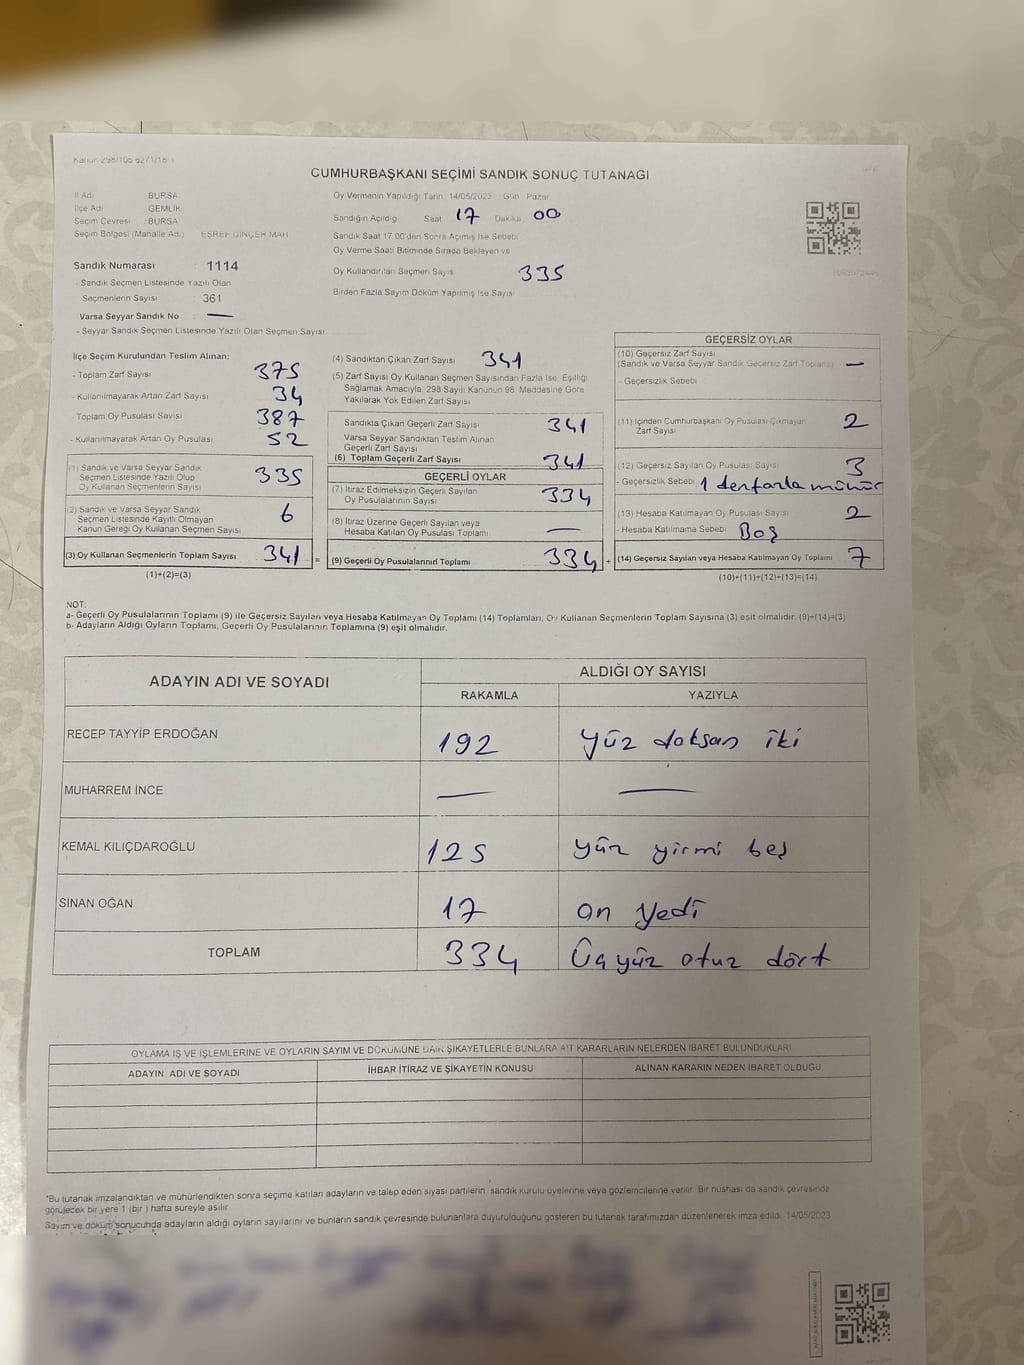 Kanun: 298/105 62/1/16 1
CUMHURBAŞKANI SEÇİMİ SANDIK SONUÇ TUTANAĞI
İl Adı : BURSA
İlçe Adı : GEMLİK
Seçim Çevresi : BURSA
Seçim Bölgesi (Mahalle Adı) : EŞREF DİNÇER MAH
Sandık Numarası : 1114
- Sandık Seçmen Listesinde Yazılı Olan
Seçmenlerin Sayısı : 361
Varsa Seyyar Sandık No : —
- Seyyar Sandık Seçmen Listesinde Yazılı Olan Seçmen Sayısı
Oy Vermenin Yapıldığı Tarih: 14/05/2023 Gün: Pazar
Sandığın Açıldığı Saat 17 Dakika 00
Sandık Saat 17.00'den Sonra Açılmış İse Sebebi
Oy Verme Saati Bitiminde Sırada Bekleyen ve
Oy Kullandırılan Seçmen Sayısı 335
Birden Fazla Sayım Döküm Yapılmış İse Sayısı
İlçe Seçim Kurulundan Teslim Alınan;
- Toplam Zarf Sayısı 375
- Kullanılmayarak Artan Zarf Sayısı 34
- Toplam Oy Pusulası Sayısı 387
- Kullanılmayarak Artan Oy Pusulası 52
(1) Sandık ve Varsa Seyyar Sandık
Seçmen Listesinde Yazılı Olup
Oy Kullanan Seçmenlerin Sayısı 335
(2) Sandık ve Varsa Seyyar Sandık
Seçmen Listesinde Kayıtlı Olmayan
Kanun Gereği Oy Kullanan Seçmen Sayısı 6
(3) Oy Kullanan Seçmenlerin Toplam Sayısı 341 =
(1)+(2)=(3)
(4) Sandıktan Çıkan Zarf Sayısı 341
(5) Zarf Sayısı Oy Kullanan Seçmen Sayısından Fazla İse, Eşitliği
Sağlamak Amacıyla, 298 Sayılı Kanunun 98. Maddesine Göre
Yakılarak Yok Edilen Zarf Sayısı
Sandıkta Çıkan Geçerli Zarf Sayısı 341
Varsa Seyyar Sandıktan Teslim Alınan
Geçerli Zarf Sayısı
(6) Toplam Geçerli Zarf Sayısı 341
GEÇERLİ OYLAR
(7) İtiraz Edilmeksizin Geçerli Sayılan
Oy Pusulalarının Sayısı 334
(8) İtiraz Üzerine Geçerli Sayılan veya
Hesaba Katılan Oy Pusulası Toplamı —
(9) Geçerli Oy Pusulalarının Toplamı 334 +
GEÇERSİZ OYLAR
(10) Geçersiz Zarf Sayısı
(Sandık ve Varsa Seyyar Sandık Geçersiz Zarf Toplamı) —
- Geçersizlik Sebebi
(11) İçinden Cumhurbaşkanı Oy Pusulası Çıkmayan
Zarf Sayısı 2
(12) Geçersiz Sayılan Oy Pusulası Sayısı 3
- Geçersizlik Sebebi 1 den fazla mühür
(13) Hesaba Katılmayan Oy Pusulası Sayısı 2
- Hesaba Katılmama Sebebi Boş
(14) Geçersiz Sayılan veya Hesaba Katılmayan Oy Toplamı 7
(10)+(11)+(12)+(13)=(14)
NOT:
a- Geçerli Oy Pusulalarının Toplamı (9) ile Geçersiz Sayılan veya Hesaba Katılmayan Oy Toplamı (14) Toplamları, Oy Kullanan Seçmenlerin Toplam Sayısına (3) eşit olmalıdır. (9)+(14)=(3)
b- Adayların Aldığı Oyların Toplamı, Geçerli Oy Pusulalarının Toplamına (9) eşit olmalıdır.
ADAYIN ADI VE SOYADI
ALDIĞI OY SAYISI
RAKAMLA YAZIYLA
RECEP TAYYİP ERDOĞAN 192 yüz doksan iki
MUHARREM İNCE — —
KEMAL KILIÇDAROĞLU 125 yüz yirmi beş
SİNAN OĞAN 17 on yedi
TOPLAM 334 Üçyüz otuz dört
OYLAMA İŞ VE İŞLEMLERİNE VE OYLARIN SAYIM VE DÖKÜMÜNE DAİR ŞİKAYETLERLE BUNLARA AİT KARARLARIN NELERDEN İBARET BULUNDUKLARI
ADAYIN ADI VE SOYADI İHBAR İTİRAZ VE ŞİKAYETİN KONUSU ALINAN KARARIN NEDEN İBARET OLDUĞU
*Bu tutanak imzalandıktan ve mühürlendikten sonra seçime katılan adayların ve talep eden siyasi partilerin sandık kurulu üyelerine veya gözlemcilerine verilir. Bir nüshası da sandık çevresinde
görülecek bir yere 1 (bir) hafta süreyle asılır.
Sayım ve döküm sonucunda adayların aldığı oyların sayılarını ve bunların sandık çevresinde bulunanlara duyurulduğunu gösteren bu tutanak tarafımızdan düzenlenerek imza edildi. 14/05/2023